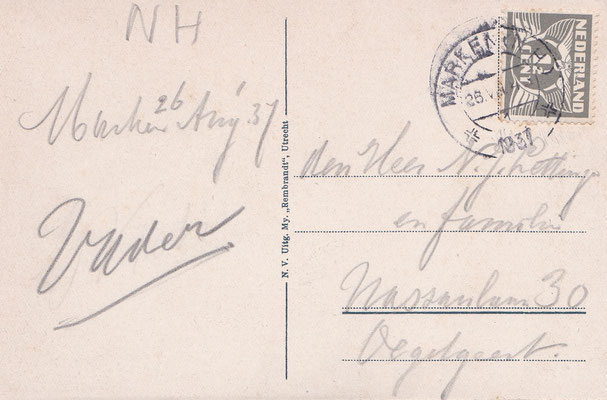 NH
Marken 26 Aug '37
Vader
N. V. Uitg. My. „Rembrandt", Utrecht
MARKEN
1937
NEDERLAND
CENT
den Heer N.
en familie
Nassaulaan 30
Oegstgeest.